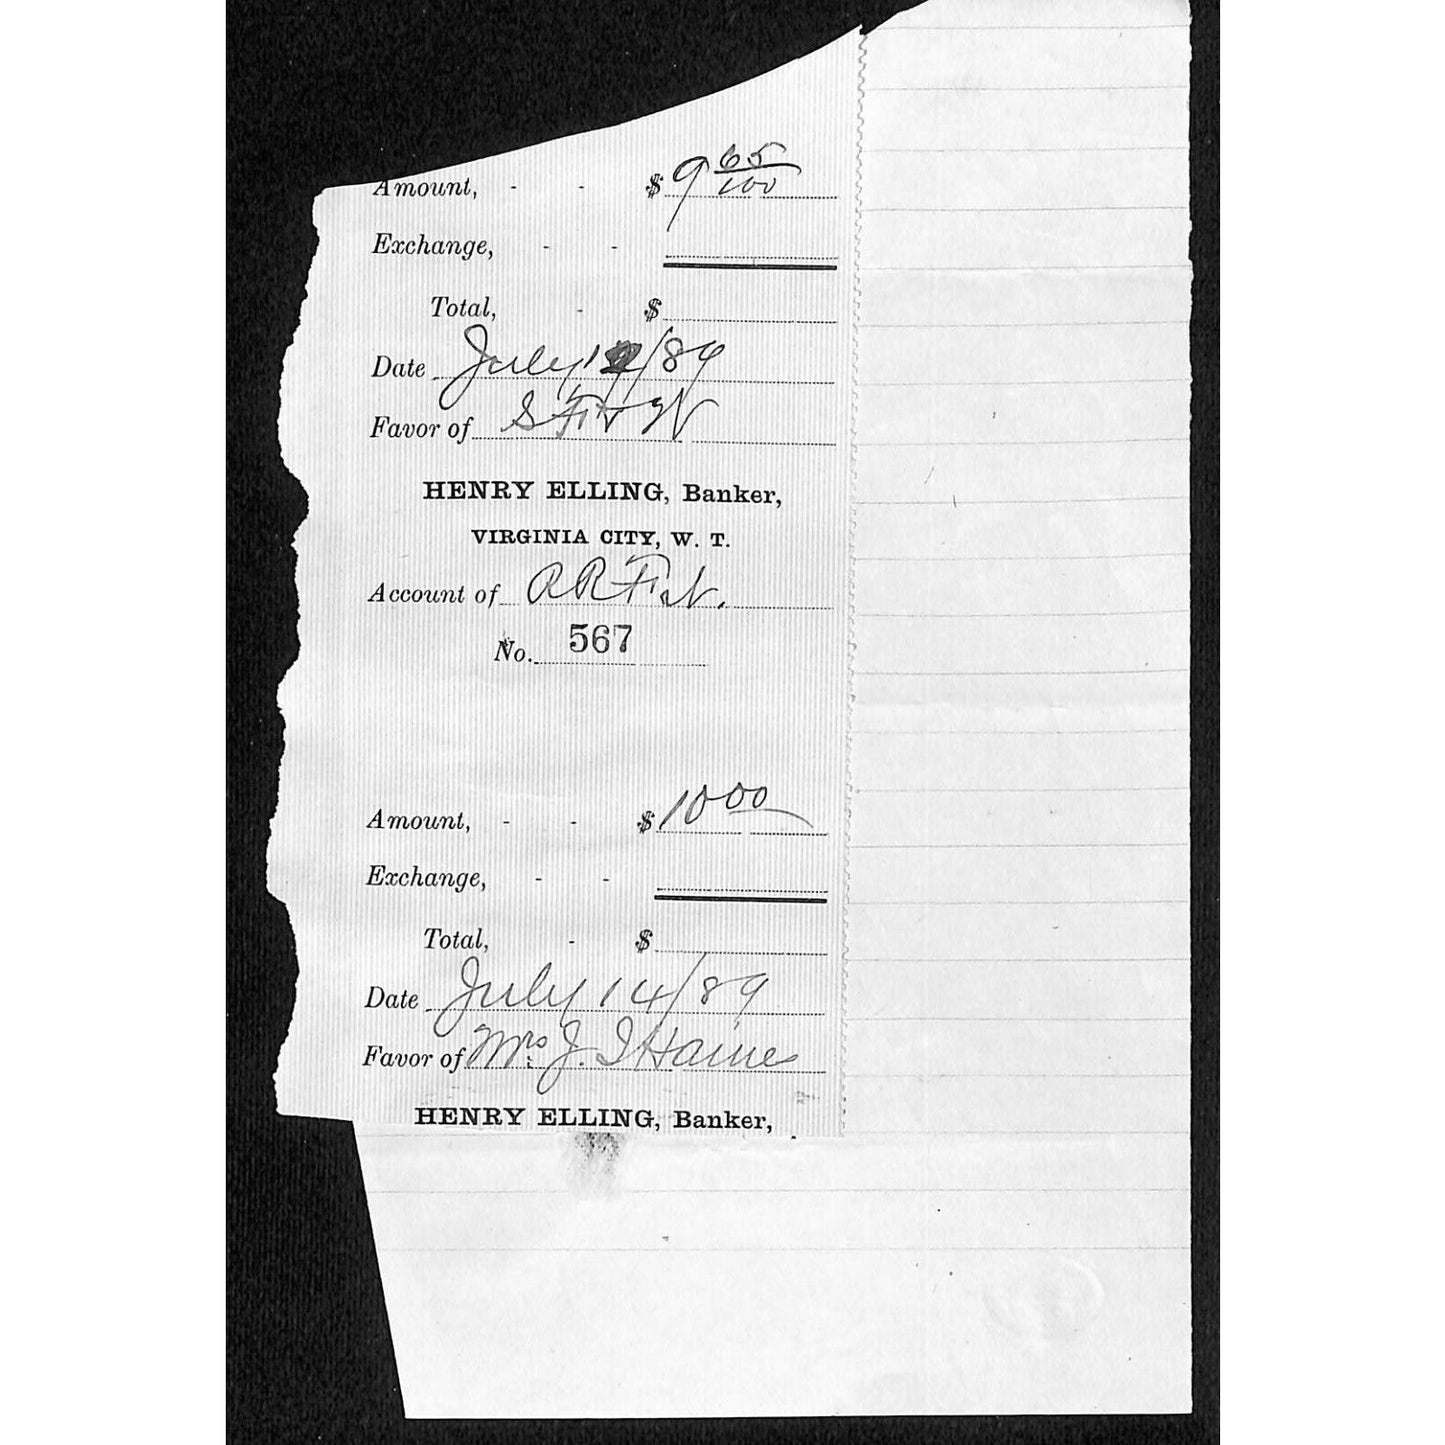 Amount, - - $ 9 65/100
Exchange, - -
Total, - $
Date July /89
Favor of S
HENRY ELLING, Banker,
VIRGINIA CITY, W. T.
Account of R R
No. 567
Amount, - - $ 10 00
Exchange, - -
Total, - $
Date July 14/89
Favor of Mrs J. I Haine
HENRY ELLING, Banker,